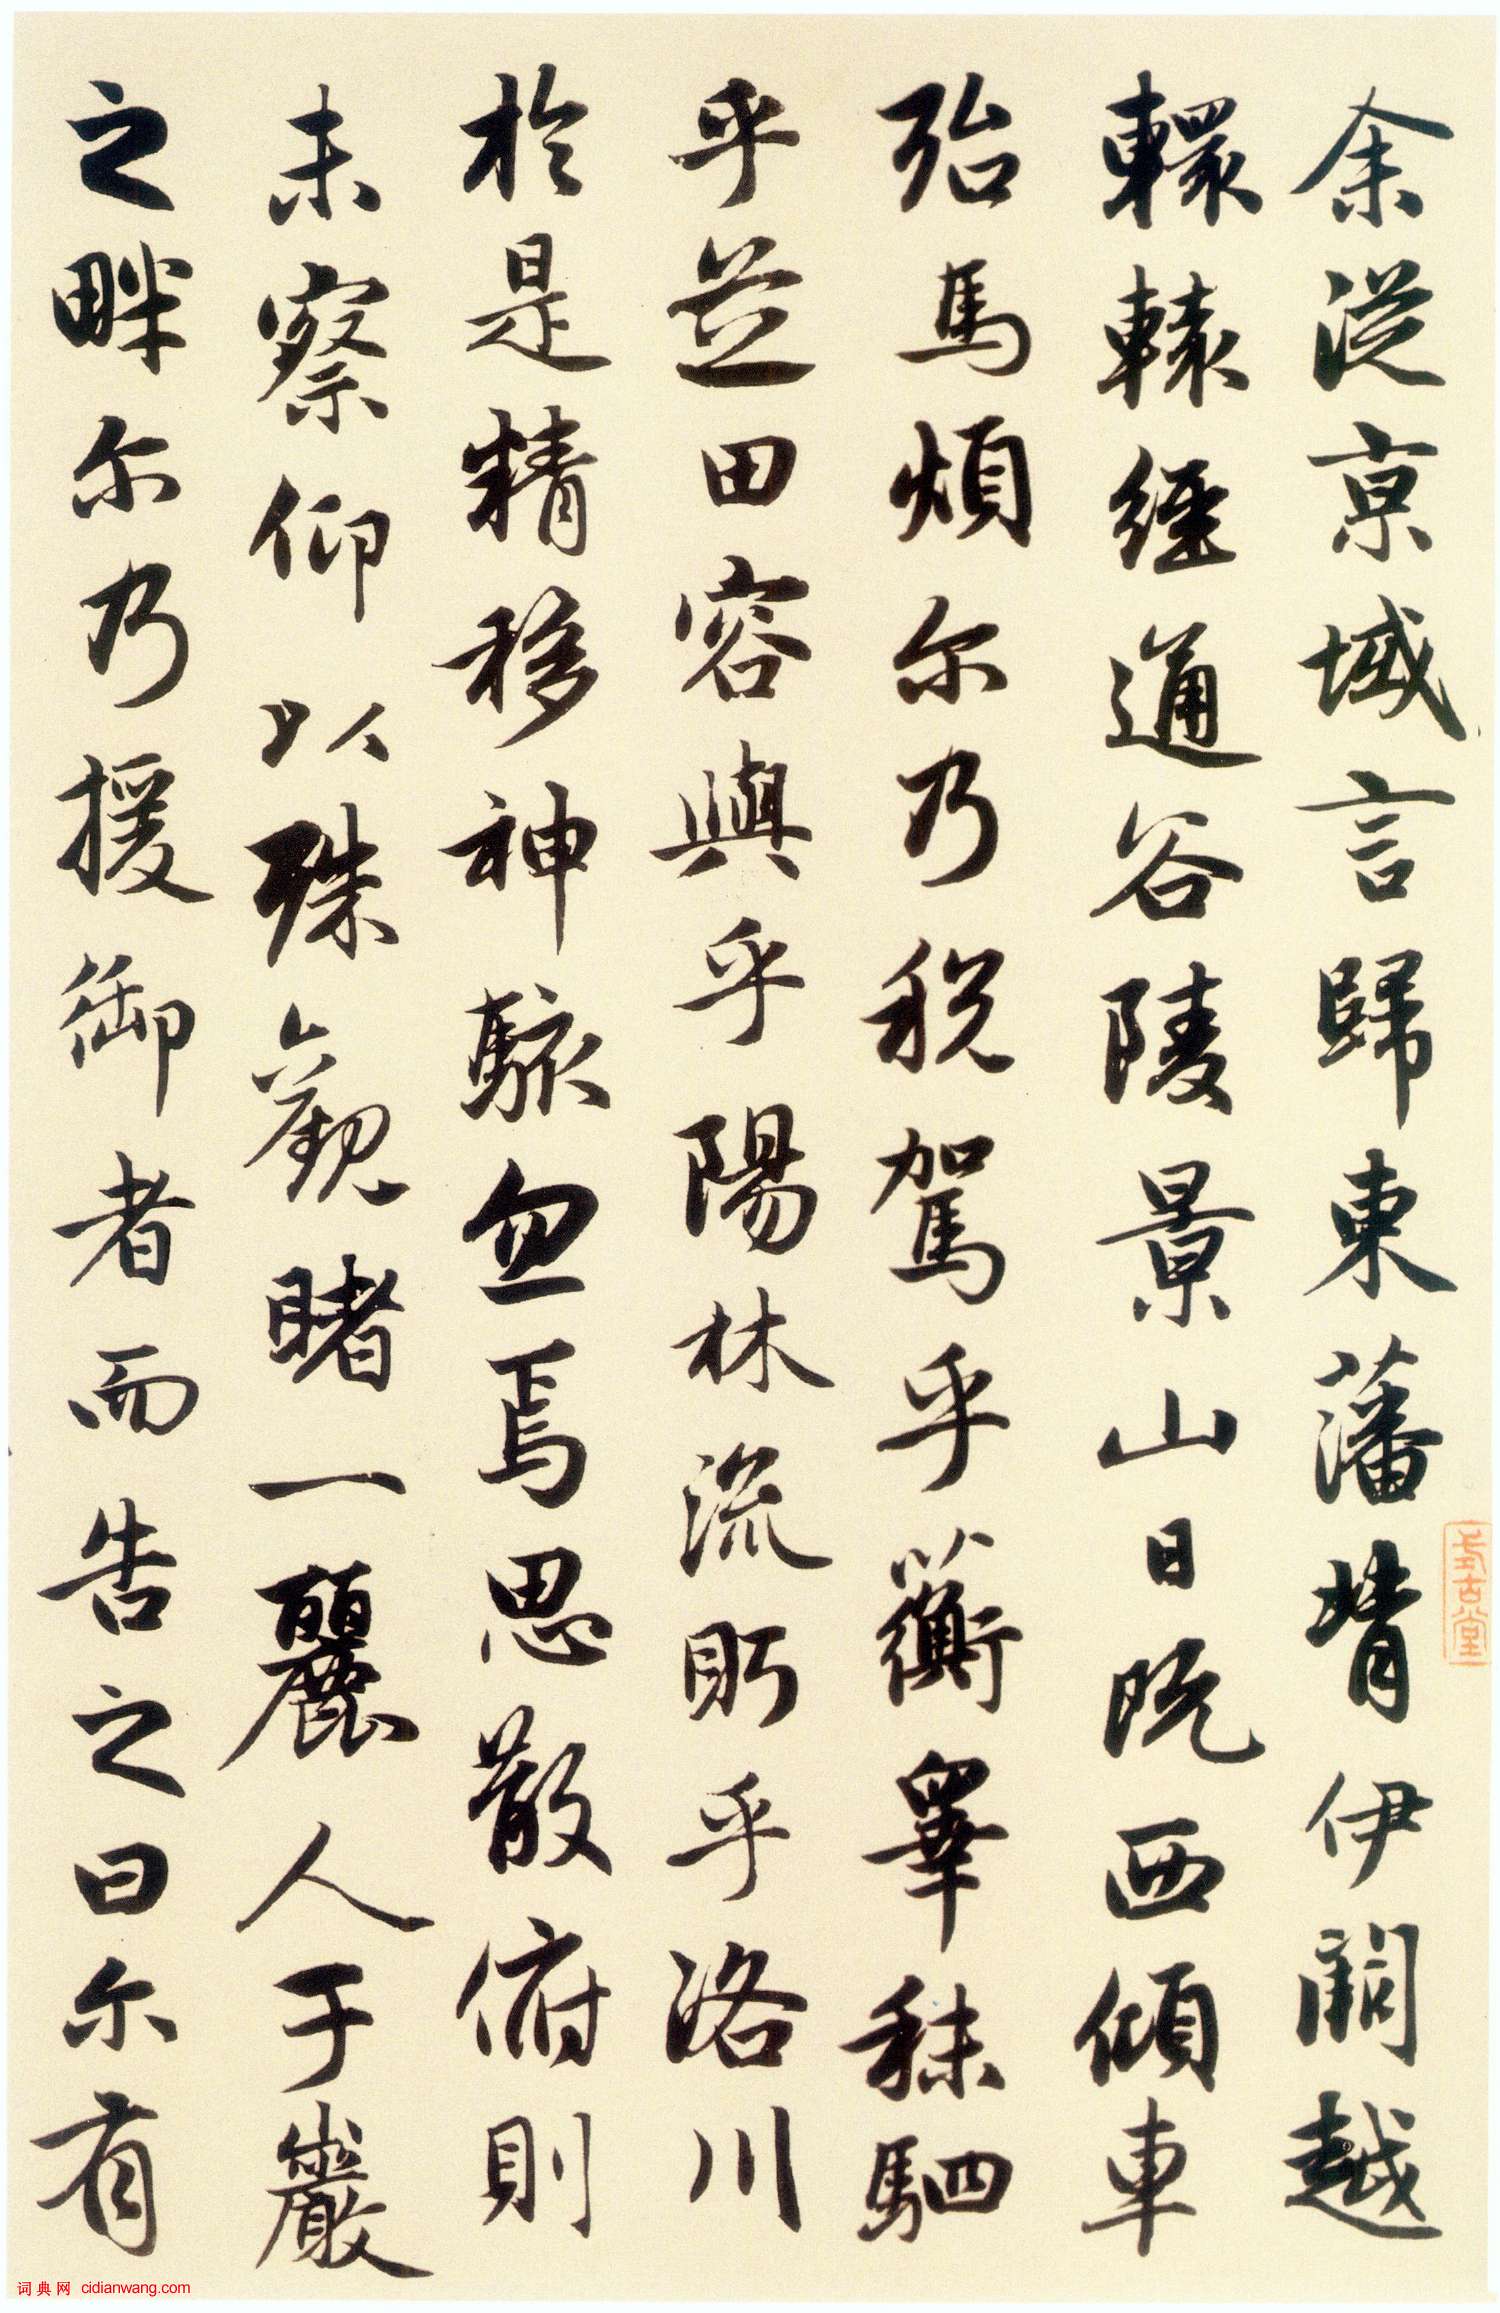 余從京域言歸東藩背伊闕越
轘轅經通谷陵景山日既西傾車
殆馬煩尔乃税駕乎蘅皋秣駟
乎芝田容與乎陽林流眄乎洛川
於是精移神駭忽焉思散俯則
未察仰以殊觀睹一麗人于巖
之畔尔乃援御者而告之曰尔有
古堂
词典网 cidianwang.com